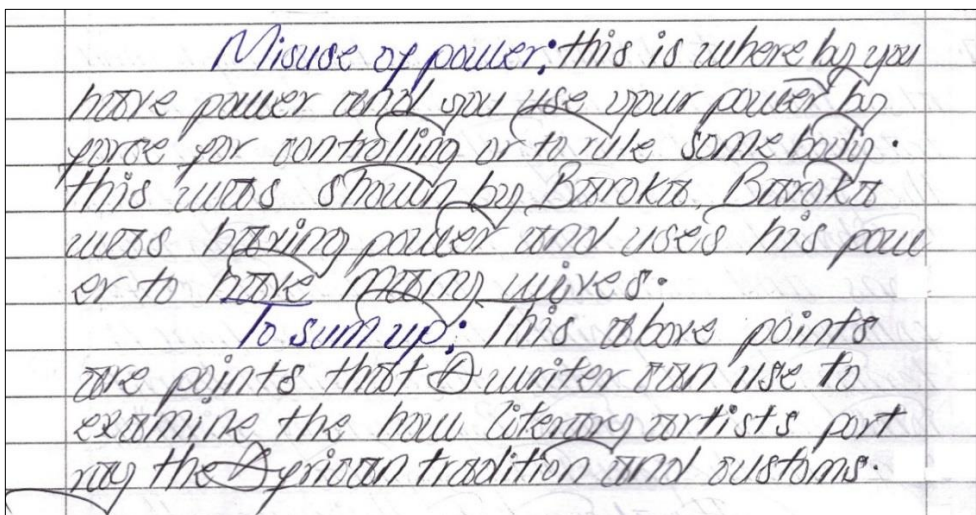 Misuse of power; this is where by you
have power and you use your power by
force for controlling or to rule some body.
this was shown by Baroka. Baroka
was having power and uses his pow
er to have many wives.
To sum up; This above points
are points that A writer can use to
examine the how literary artists port
ray the African tradition and customs.